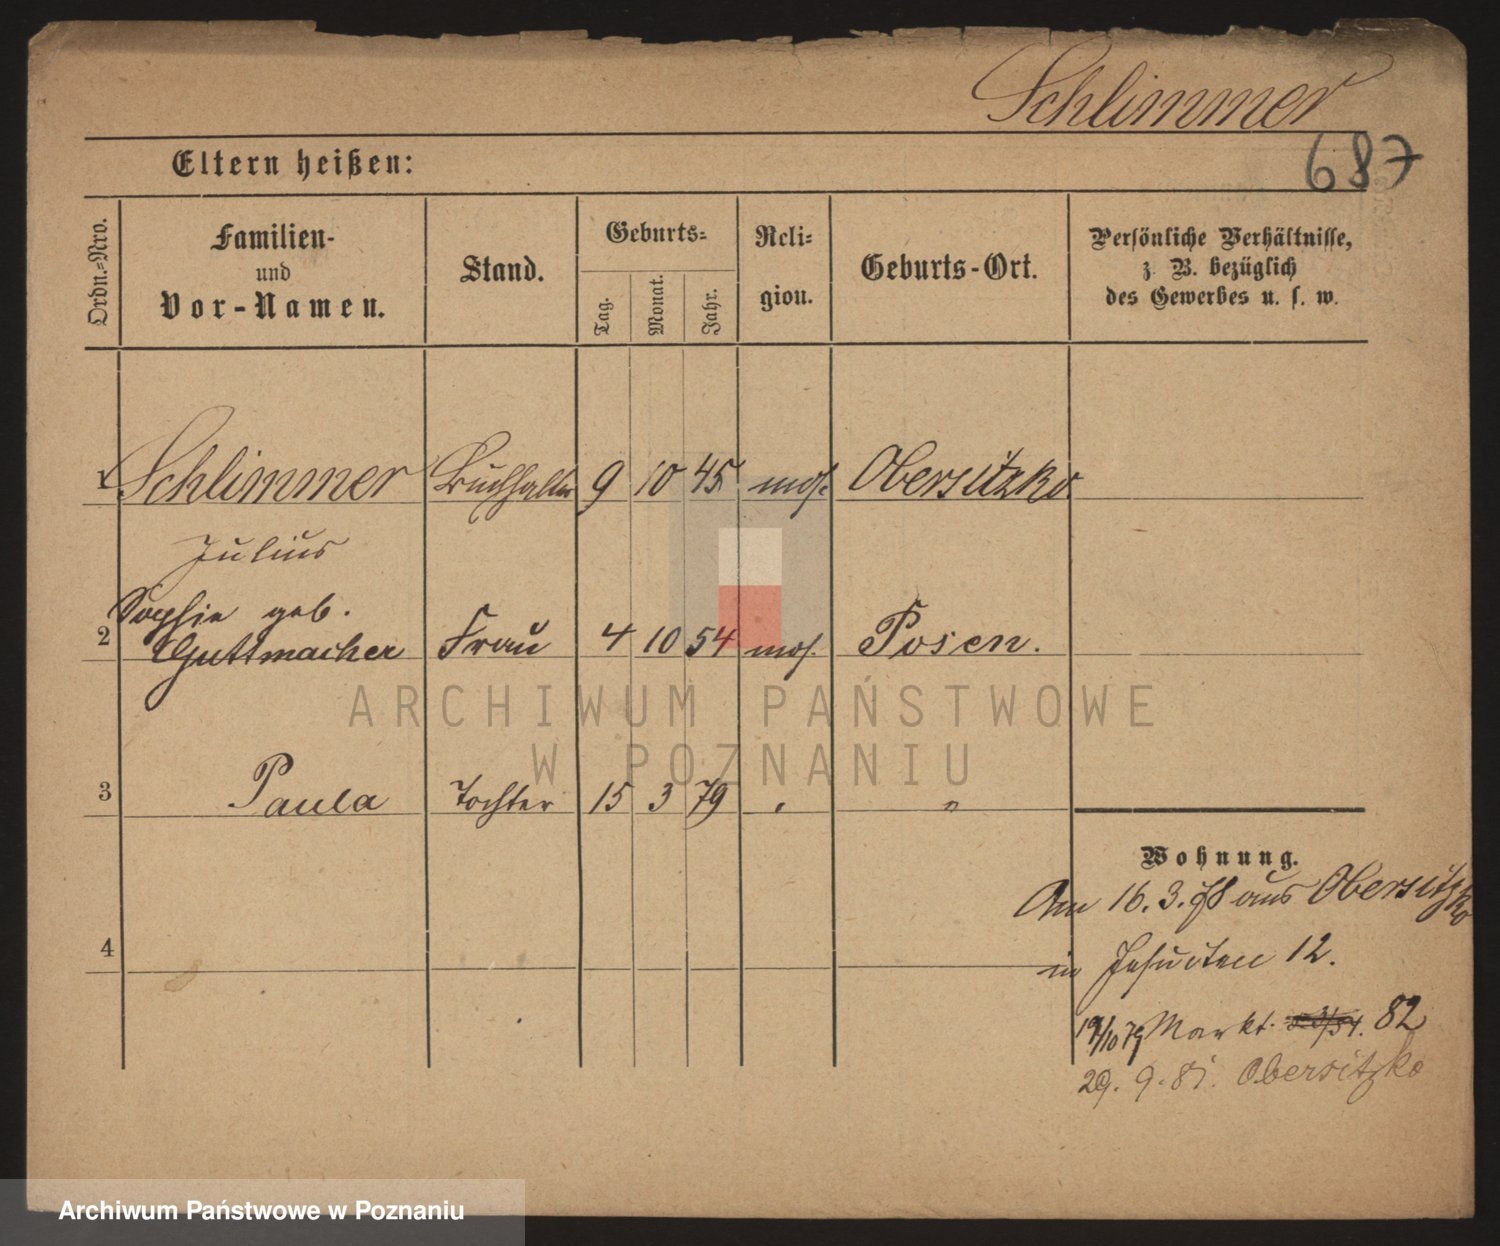 Schlimmer
687
Eltern heißen:
Ordn.=Nro.
Familien-
und
Vor-Namen.
Stand.
Geburts=
Tag.
Monat.
Jahr.
Reli=
gion.
Geburts-Ort.
Persönliche Verhältnisse,
z. B. bezüglich
des Gewerbes u. s. w.
1 Schlimmer Buchhalter 9 10 45 mos. Obersitzko
Julius
Sophie geb.
2 Guttmacher Frau 4 10 54 mos. Posen.
ARCHIWUM PAŃSTWOWE
W POZNANIU
3 Paula Tochter 15 3 79 " "
Wohnung.
Am 16. 3. 78 aus Obersitzko
4
in Jesuiten 12.
19/10 79 Markt 82
29. 9. 81. Obersitzko
Archiwum Państwowe w Poznaniu